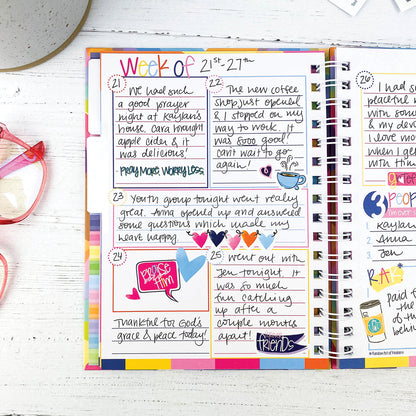 Week of 21st-27th
21
We had such
a good prayer
night at Kaylan's
house. Cara brought
apple cider & it
was delicious!
PRAY MORE, WORRY LESS
22
The new coffee
shop just opened
& I stopped on my
way to work. It
was sooo good!
Can't wait to go
again!
23
Youth group tonight went really
great. Anna opened up and answered
some questions which made my
heart happy.
24
praise
Him
Thankful for God's
grace & peace today!
25
Went out with
Jen tonight. It
was so much
fun catching
up after a
couple months
apart!
friends
26
I had s
peaceful m
with som
& my dev
I love mor
when I get
with Him
3
PEOPLE
Kaylan
Anna
Jen